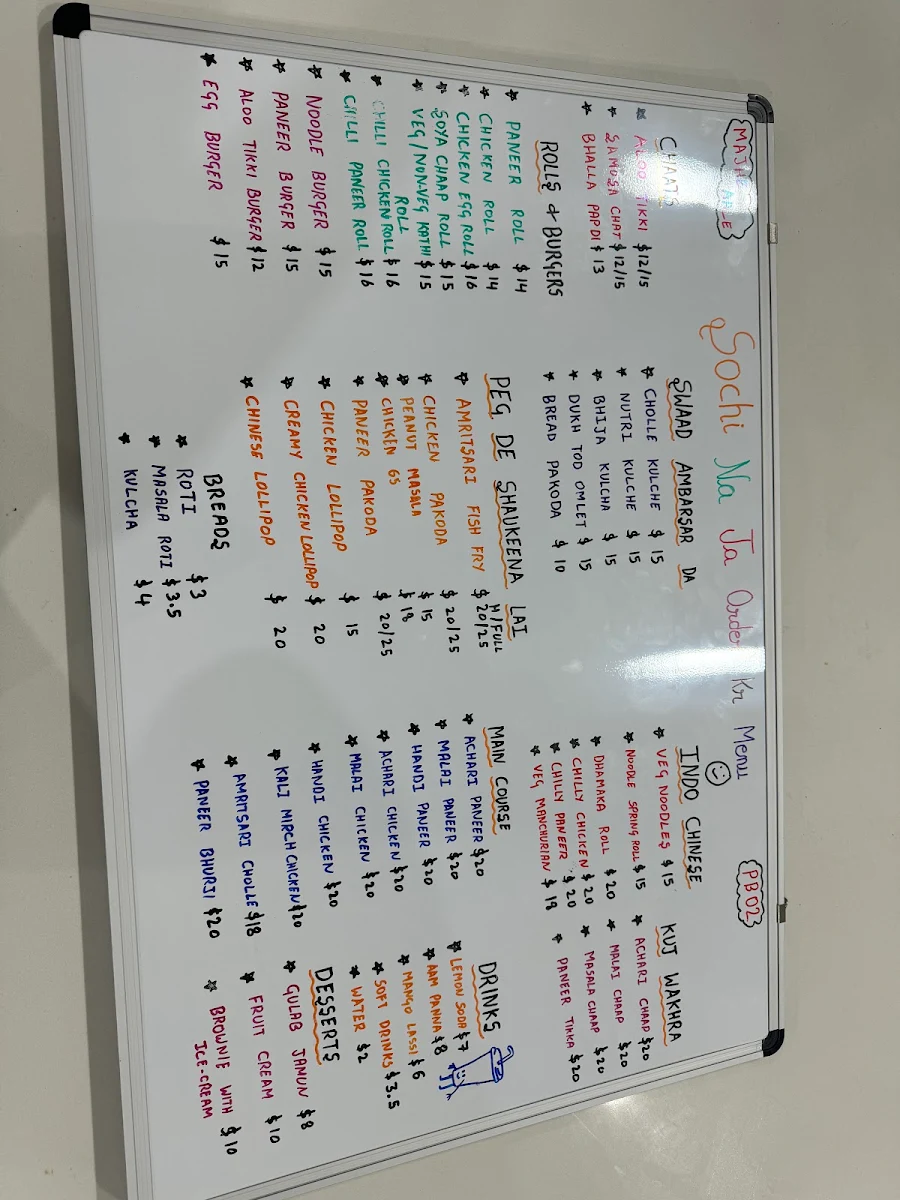 Sochi Na Ja Order Kr Menu
PB02
CHAATS
ALOO TIKKI $12/15
SAMOSA CHAT $12/15
BHALLA PAPDI $ 13
ROLLS & BURGERS
PANEER ROLL $14
CHICKEN ROLL $14
CHICKEN EGG ROLL $16
SOYA CHAAP ROLL $15
VEG/NON-VEG KATHI $15
ROLL
CHILLI CHICKEN ROLL $16
CHILLI PANEER ROLL $16
NOODLE BURGER $15
PANEER BURGER $15
ALOO TIKKI BURGER $12
EGG BURGER $15
SWAAD AMBARSAR DA
CHOLLE KULCHE $ 15
NUTRI KULCHE $ 15
BHIJA KULCHA $ 15
DUKH TOD OMLET $ 15
BREAD PAKODA $ 10
PEG DE SHAUKEENA LAI
H/FULL
AMRITSARI FISH FRY $ 20/25
CHICKEN PAKODA $ 20/25
PEANUT MASALA $ 15
CHICKEN 65 $ 18
PANEER PAKODA $ 20/25
CHICKEN LOLLIPOP $ 15
CREAMY CHICKEN LOLLIPOP $ 20
CHINESE LOLLIPOP $ 20
BREADS
ROTI $3
MASALA ROTI $3.5
KULCHA $4
INDO CHINESE
VEG NOODLES $15
NOODLE SPRING ROLL $15
DHAMAKA ROLL $ 20
CHILLY CHICKEN $ 20
CHILLY PANEER $ 20
VEG MANCHURIAN $ 18
KUJ WAKHRA
ACHARI CHAAP $20
MALAI CHAAP $20
MASALA CHAAP $20
PANEER TIKKA $20
MAIN COURSE
ACHARI PANEER $20
MALAI PANEER $20
HANDI PANEER $20
ACHARI CHICKEN $20
MALAI CHICKEN $20
HANDI CHICKEN $20
KALI MIRCH CHICKEN $20
AMRITSARI CHOLLE $18
PANEER BHURJI $20
DRINKS
LEMON SODA $7
AAM PANNA $8
MANGO LASSI $6
SOFT DRINKS $3.5
WATER $2
DESSERTS
GULAB JAMUN $8
FRUIT CREAM $10
BROWNIE WITH $10
ICE-CREAM